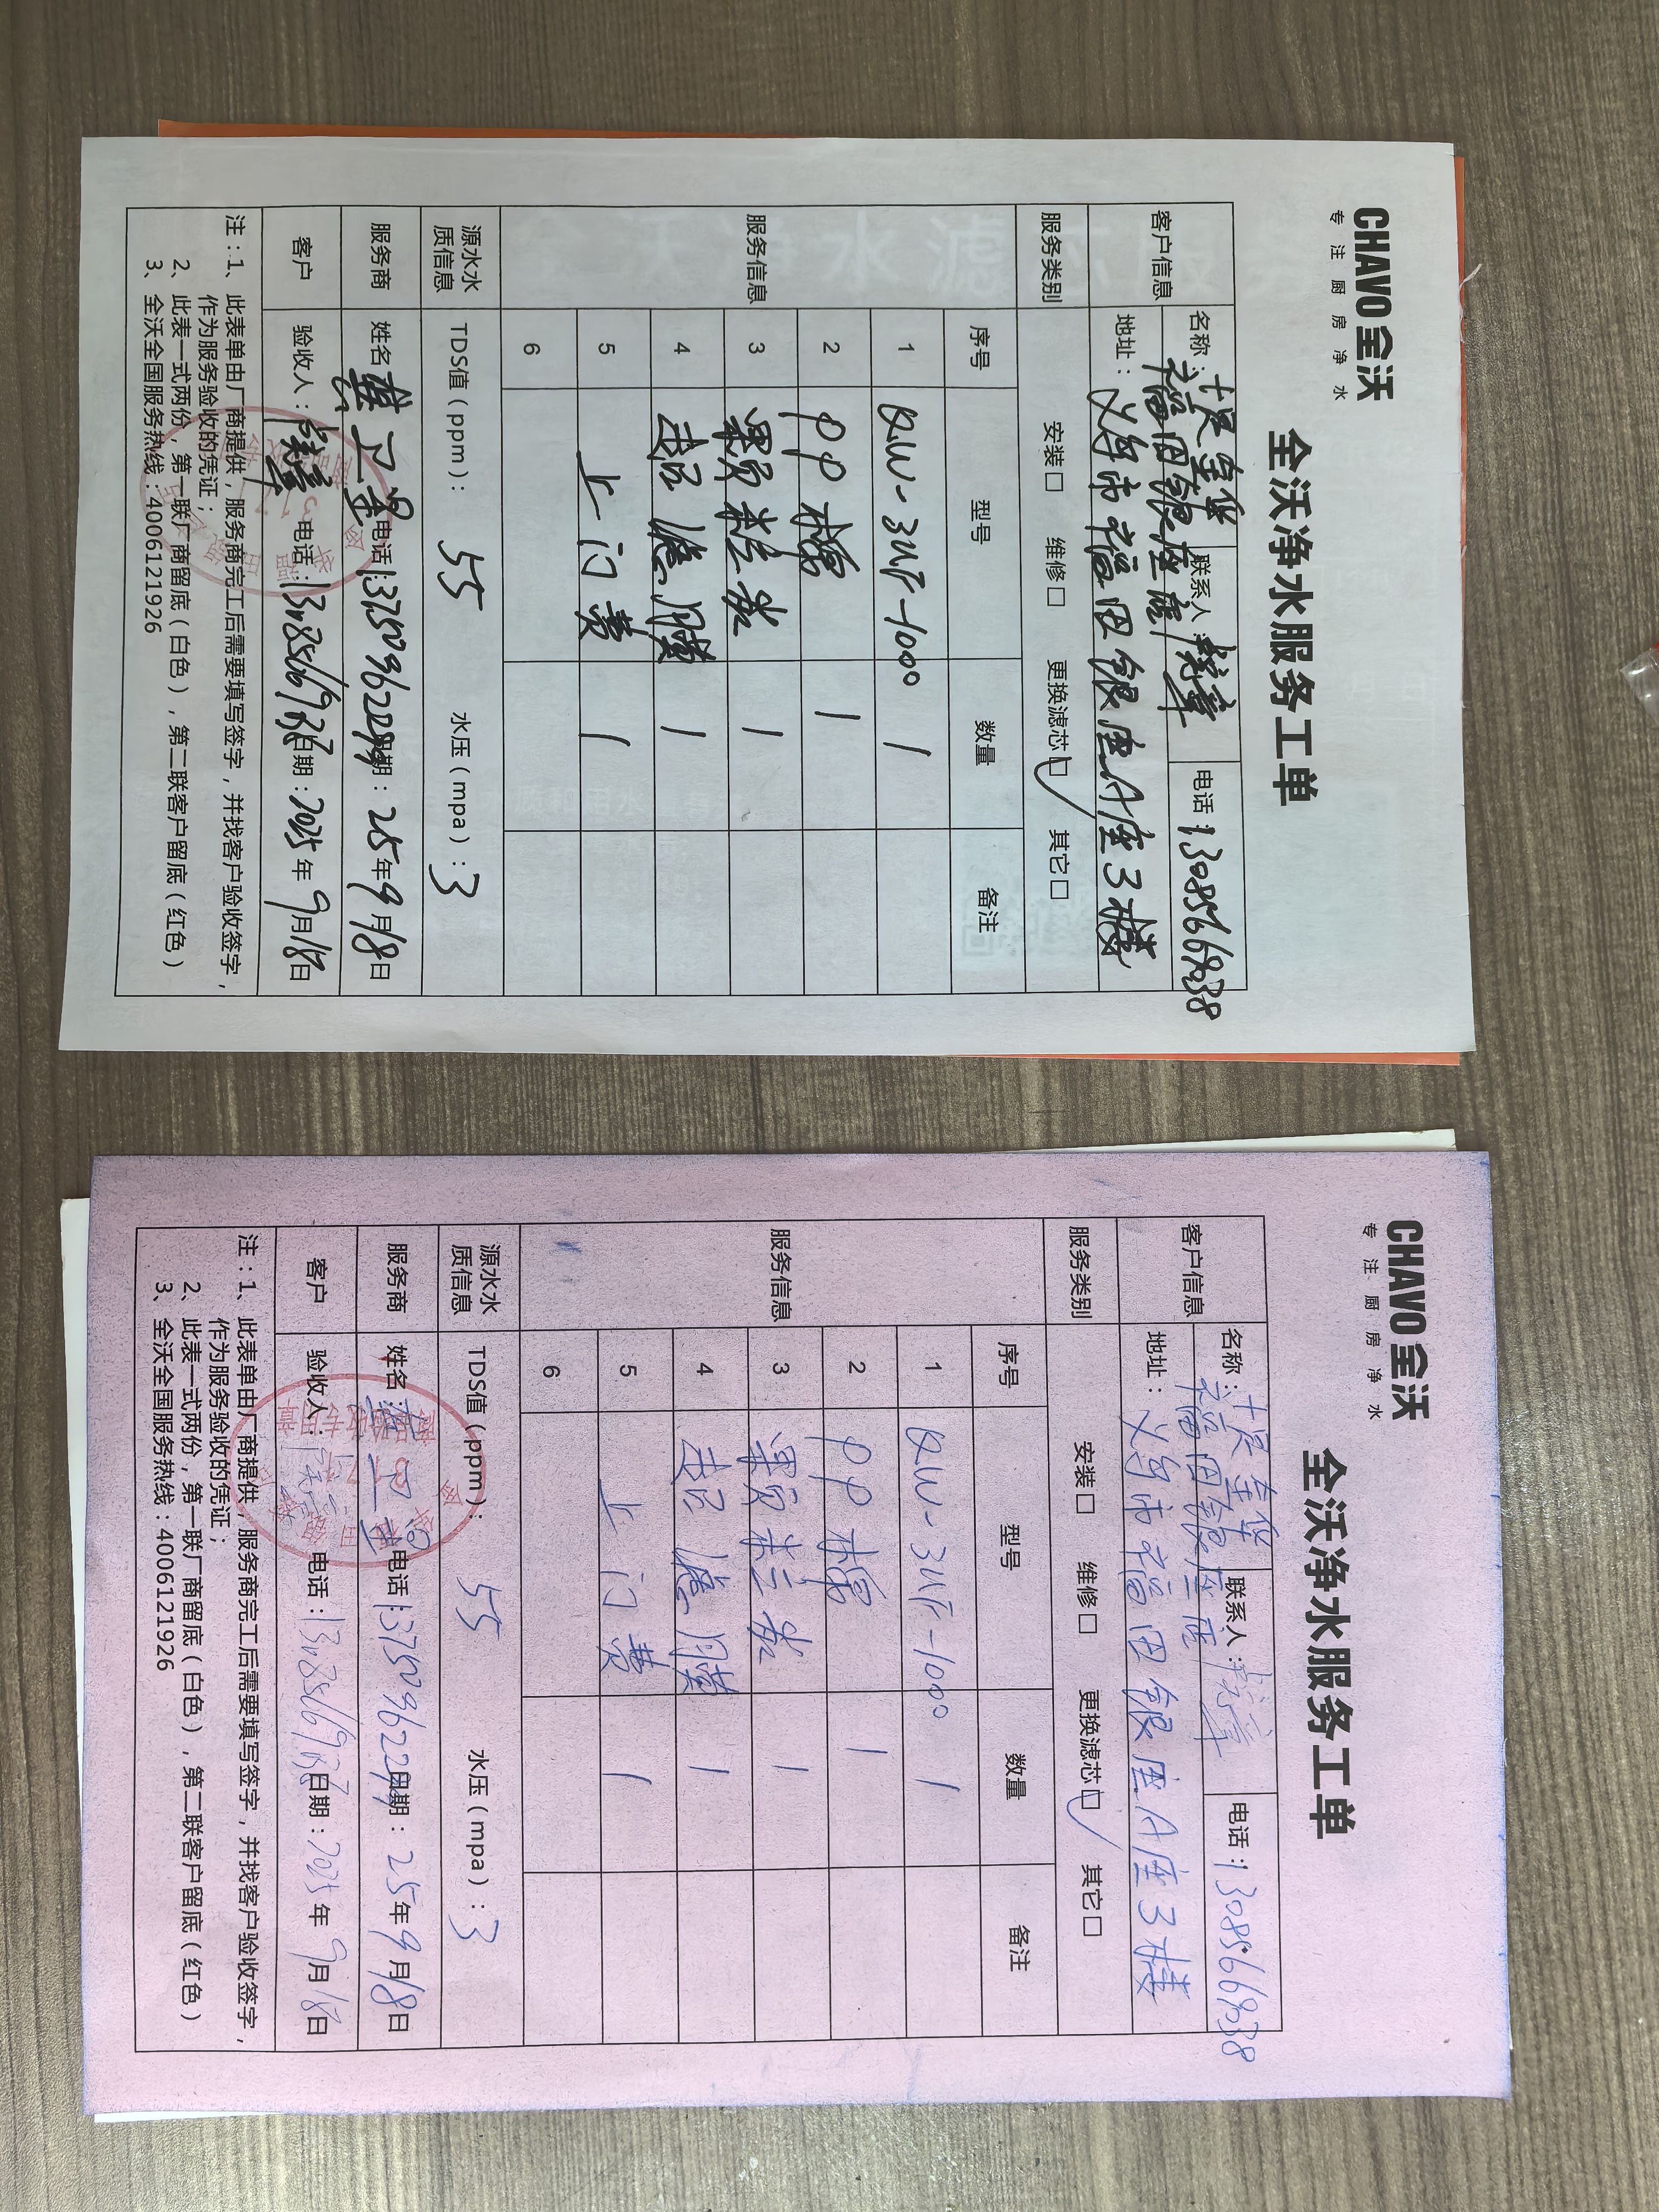 CHAVO 全沃
专注厨房净水
全沃净水服务工单
客户信息
名称：
福田银座店
联系人：
电话：13085668038
地址：义乌市福田银座A座3楼
服务类别
安装□ 维修□ 更换滤芯☑ 其它□
服务信息
序号 型号 数量 备注
1 QW-3UF-100 1
2 PP棉 1
3 颗粒炭 1
4 超滤膜 1
5 上门费 1
6
源水水质信息
TDS值（ppm）：55 水压（mpa）：3
服务商
姓名： 电话： 日期：25年9月18日
客户
验收人： 电话： 日期：2025年9月18日
注：1、此表单由厂商提供，服务商完工后需要填写签字，并找客户验收签字，
作为服务验收的凭证；
2、此表一式两份，第一联厂商留底（白色），第二联客户留底（红色）
3、全沃全国服务热线：4006121926
CHAVO 全沃
专注厨房净水
全沃净水服务工单
客户信息
名称：
福田银座店
联系人：
电话：13085668038
地址：义乌市福田银座A座3楼
服务类别
安装□ 维修□ 更换滤芯☑ 其它□
服务信息
序号 型号 数量 备注
1 QW-3UF-100 1
2 PP棉 1
3 颗粒炭 1
4 超滤膜 1
5 上门费 1
6
源水水质信息
TDS值（ppm）：55 水压（mpa）：3
服务商
姓名： 电话： 日期：25年9月18日
客户
验收人： 电话： 日期：2025年9月18日
注：1、此表单由厂商提供，服务商完工后需要填写签字，并找客户验收签字，
作为服务验收的凭证；
2、此表一式两份，第一联厂商留底（白色），第二联客户留底（红色）
3、全沃全国服务热线：4006121926